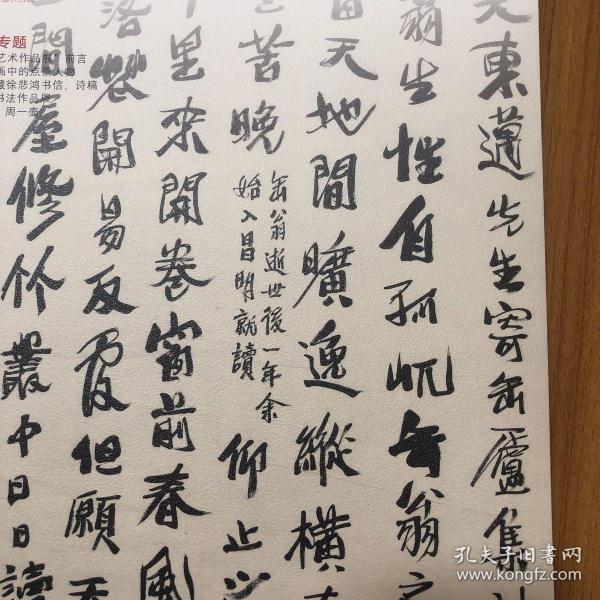 专题
艺术作品展 前言
画中的点景人物
藏徐悲鸿书信、诗稿
书法作品展
周一
東邁先生寄缶廬集
翁生性自孤缶翁
天地間曠逸縱橫
苦晚
缶翁逝世後一年余
始入昌明就讀
仰止
里來開卷窗前春風
落開易反覆但願天
間屋修竹叢中日日讀
孔夫子旧书网
www.kongfz.com